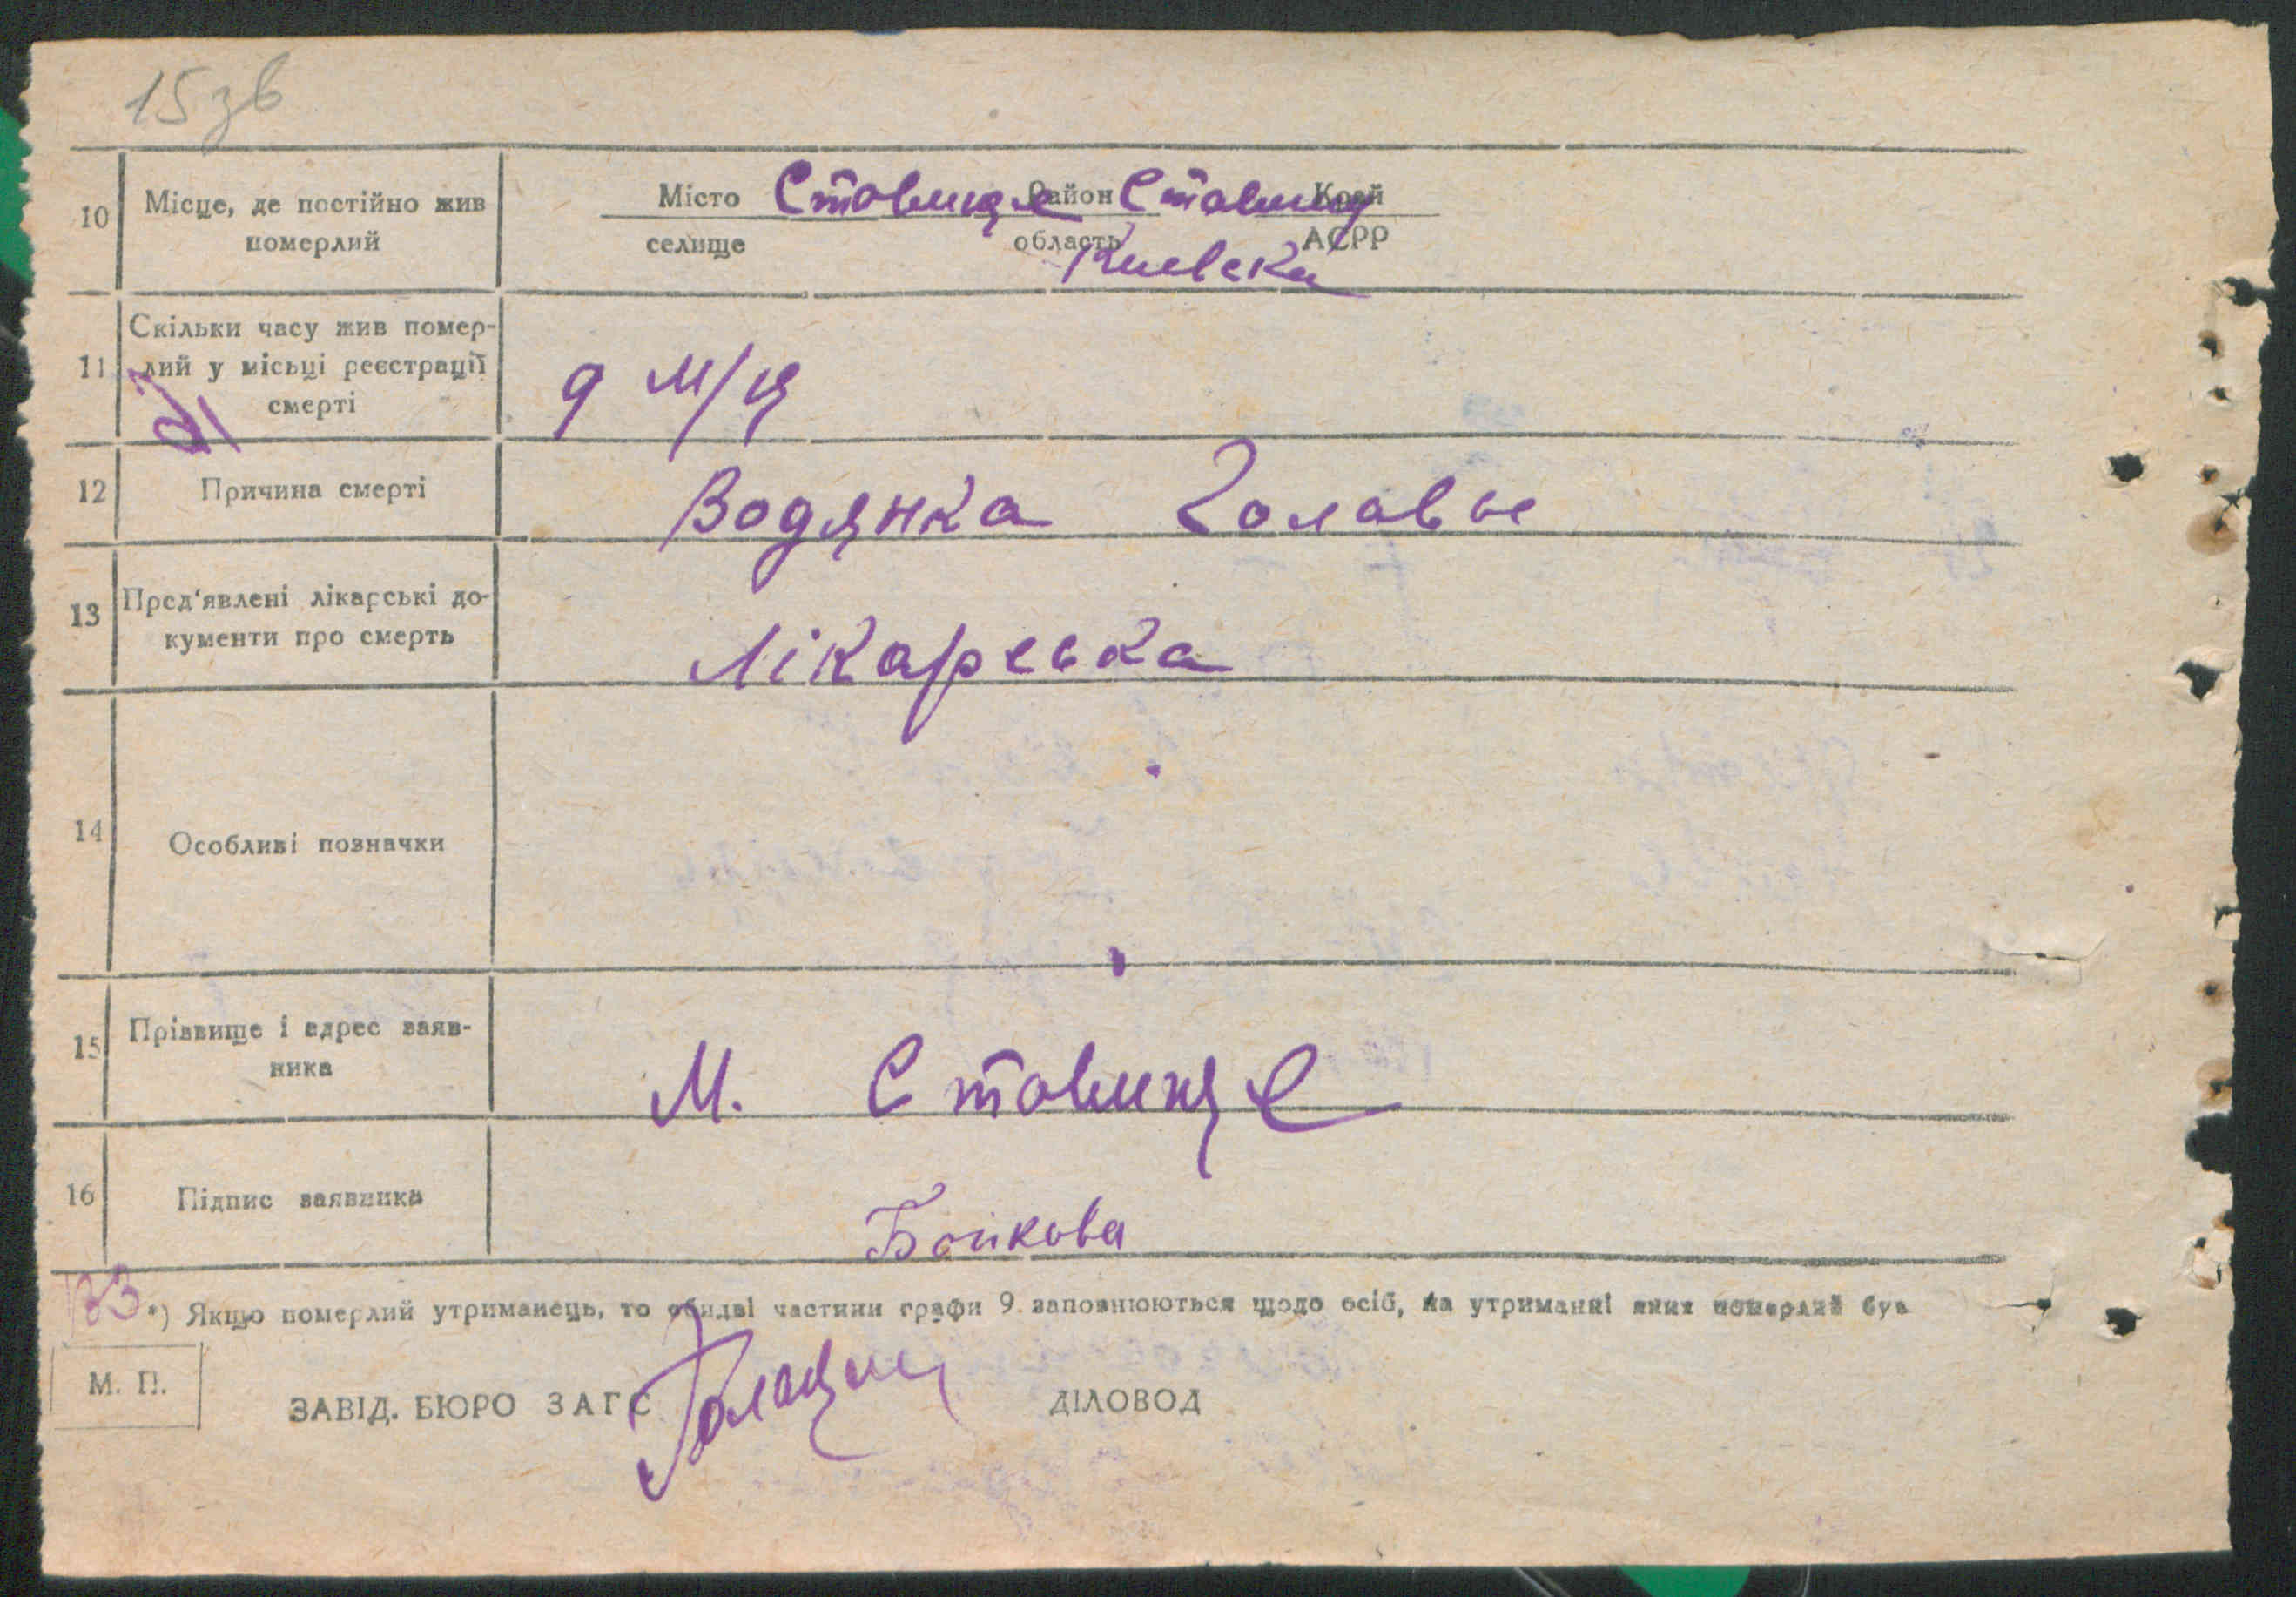 15 зв
10 Місце, де постійно жив
померлий
Місто Ставище Район Ставищ Край
селище область АСРР
Киевска
11 Скільки часу жив помер-
лий у місьці реєстрації
смерті
9 м/ц
12 Причина смерті Водянка Головы
13 Пред'явлені лікарські до-
кументи про смерть
Лікарська
14 Особливі позначки
15 Прізвище і адрес заяв-
ника
М. Ставище
16 Підпис заявника Бойкова
*) Якщо померлий утриманець, то обидві частини графи 9 заповнюються щодо осіб, на утриманні яких померлий був
М. П.
ЗАВІД. БЮРО ЗАГС ДІЛОВОД